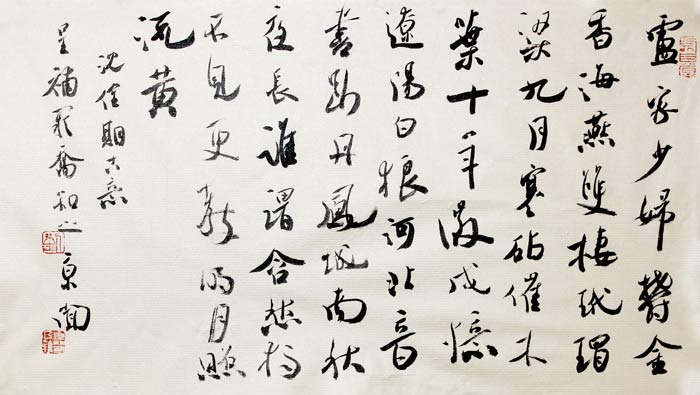 盧家少婦鬱金
香海燕雙棲玳瑁
梁九月寒砧催木
葉十年徵戍憶
遼陽白狼河北音
書斷丹鳳城南秋
夜長誰謂含愁獨
不見更教明月照
流黃
沈佺期古意
呈補闕喬知之